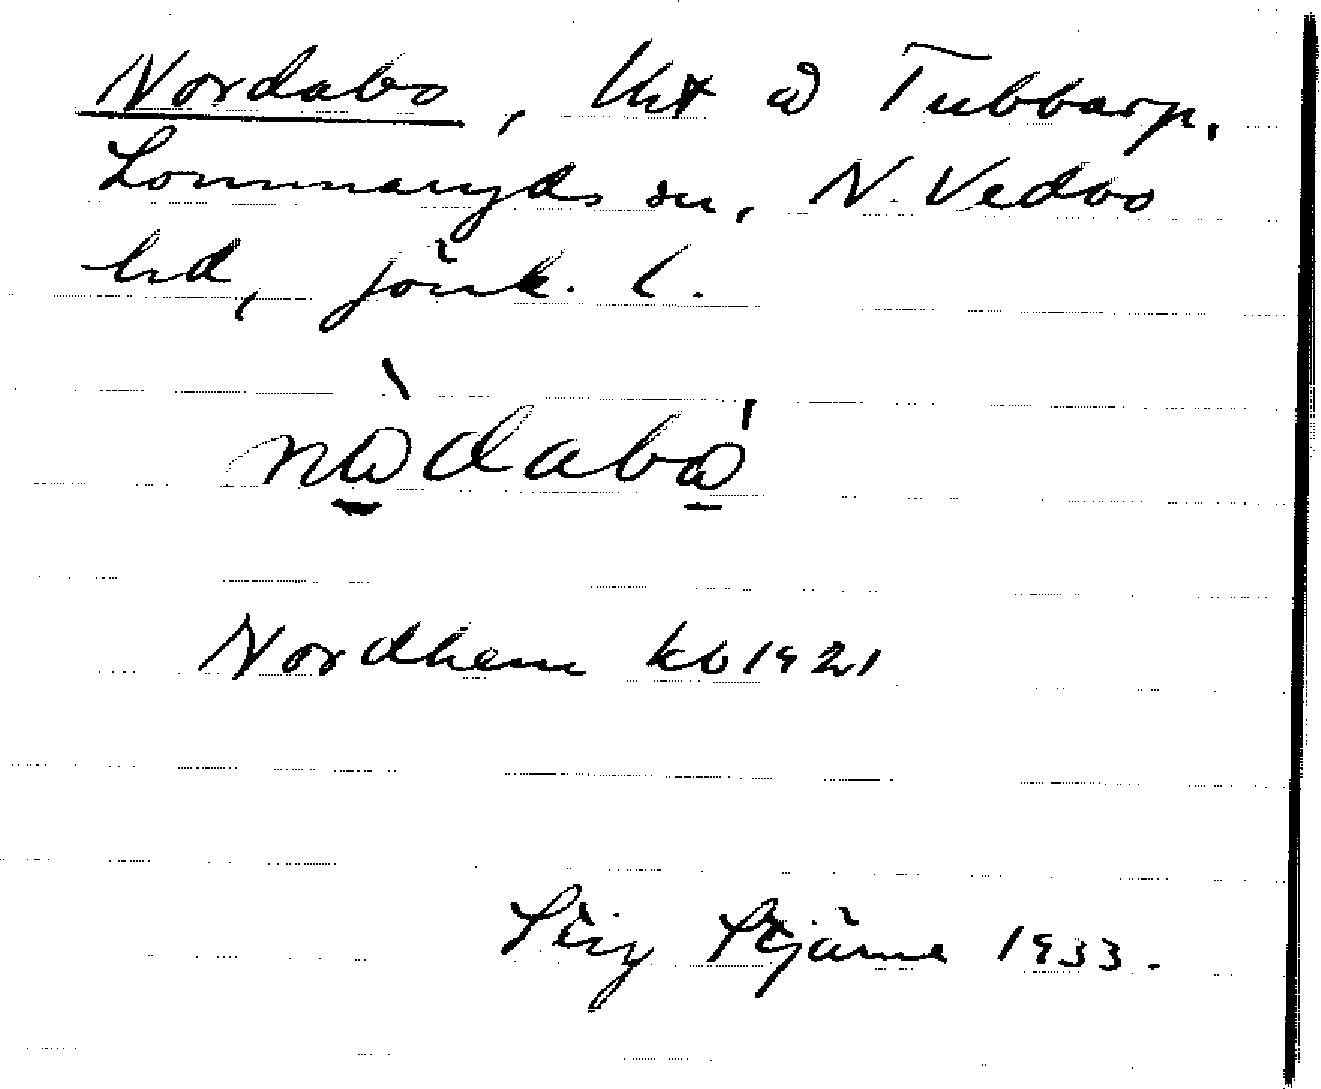 Nordabo, tht å Tubbarp,
Lommaryds sn, N. Vedbo
hd, Jönk. l.
nàdabá
Nordhem kb 1921
Stig Stjärne 1933.